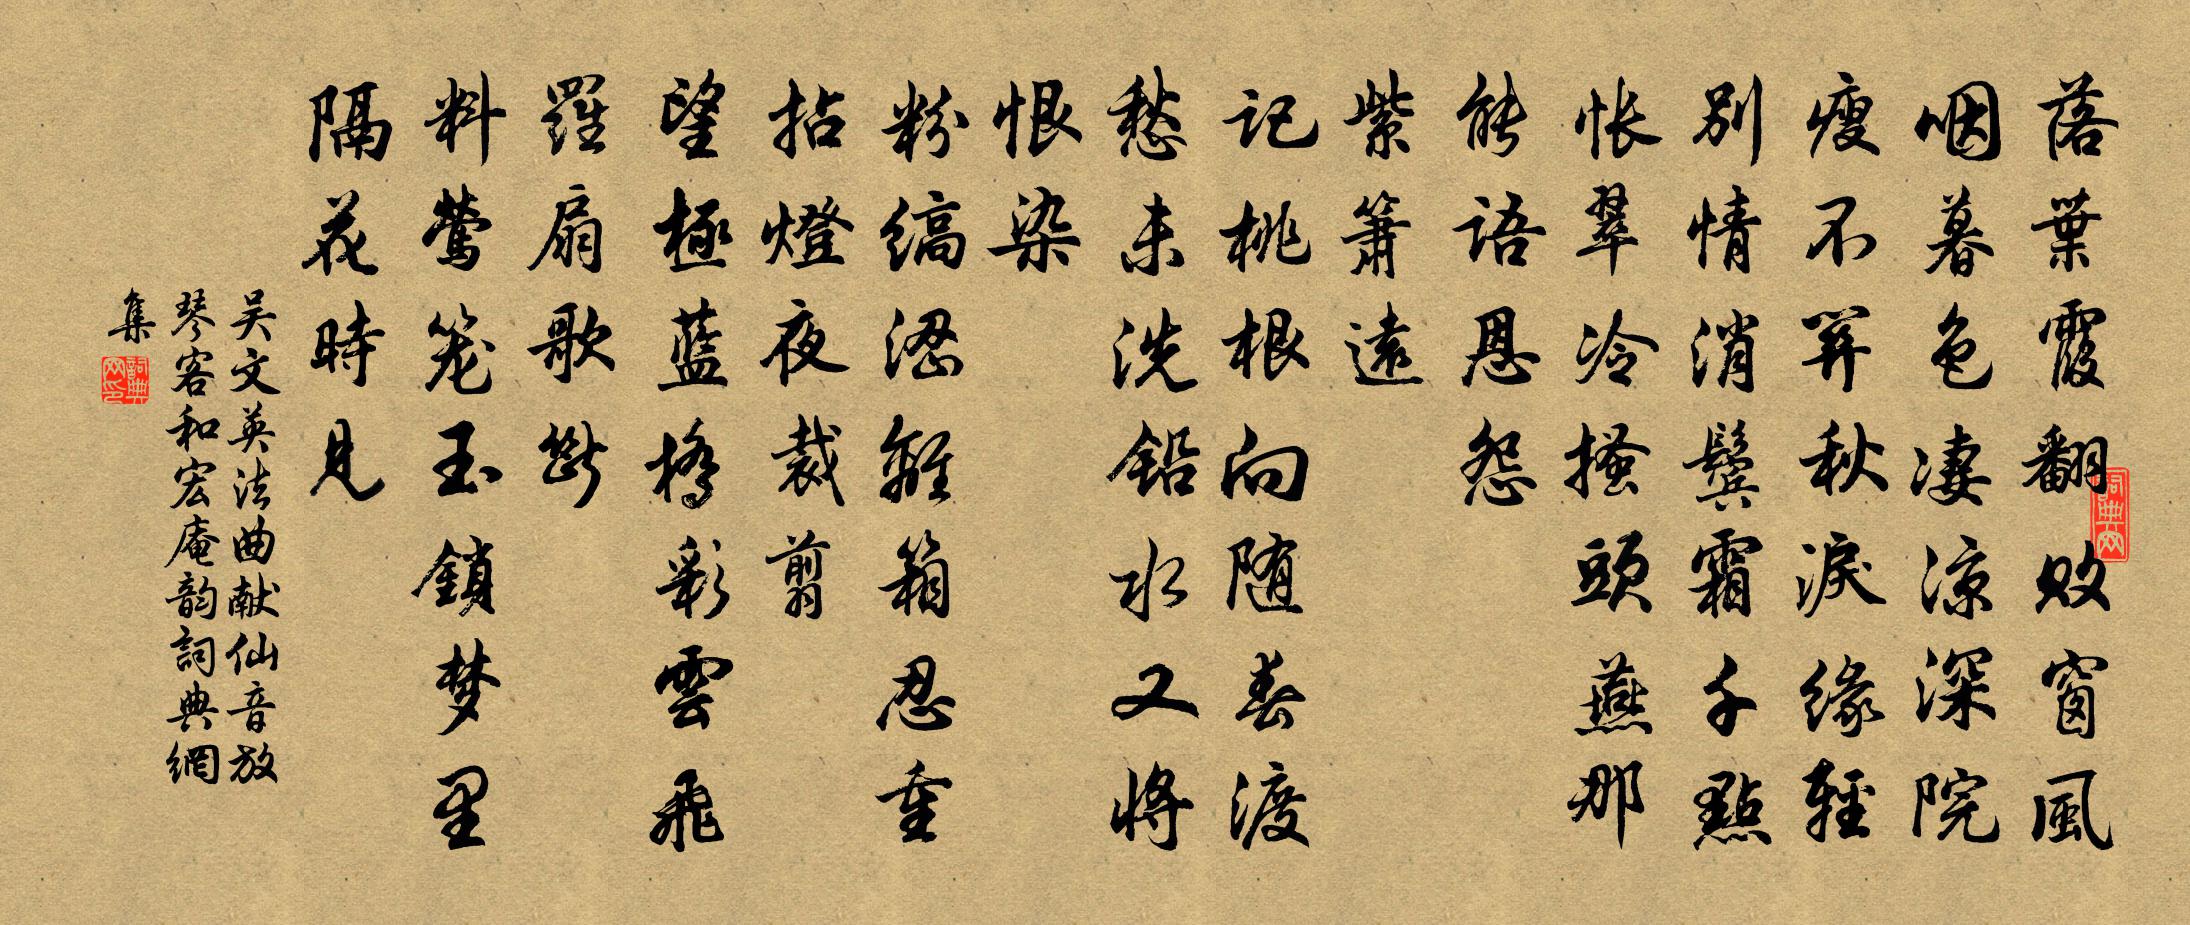 落葉霞翻敗窗風
咽暮色凄涼深院
瘦不關秋淚緣輕
別情消鬓霜千點
悵翠冷搔頭燕那
能語恩怨
紫簫遠
記桃根向随春渡
愁未洗鉛水又將
恨染
粉縞澀離箱忍重
拈燈夜裁剪
望極藍橋彩雲飛
羅扇歌斷
料鶯籠玉鎖梦里
隔花時見
吴文英法曲献仙音放
琴客和宏庵韵詞典網
集
詞典网
詞典网印